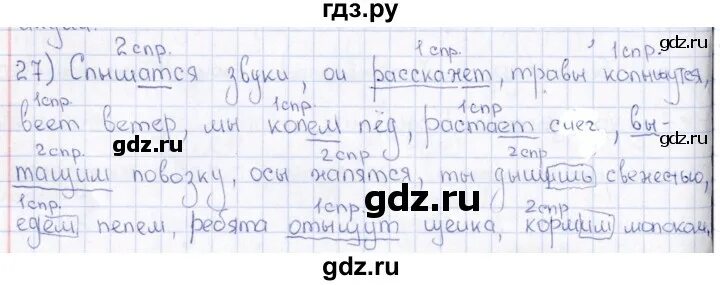 гдз.ру
2 спр. 1 спр. 1 спр.
27) Слышатся звуки, он расскажет, травы колышутся,
1 спр. 1 спр. 1 спр.
веет ветер, мы колем лёд, растает снег, вы-
gdz.ru gdz.ru
2 спр. 2 спр 2 спр
тащим повозку, осы жалятся, ты дышишь свежестью,
gdz.ru
1 спр. 1 спр. 2 спр.
едем лесом, ребята отыщут щенка, кормим молоком.
gdz.ru gdz.ru